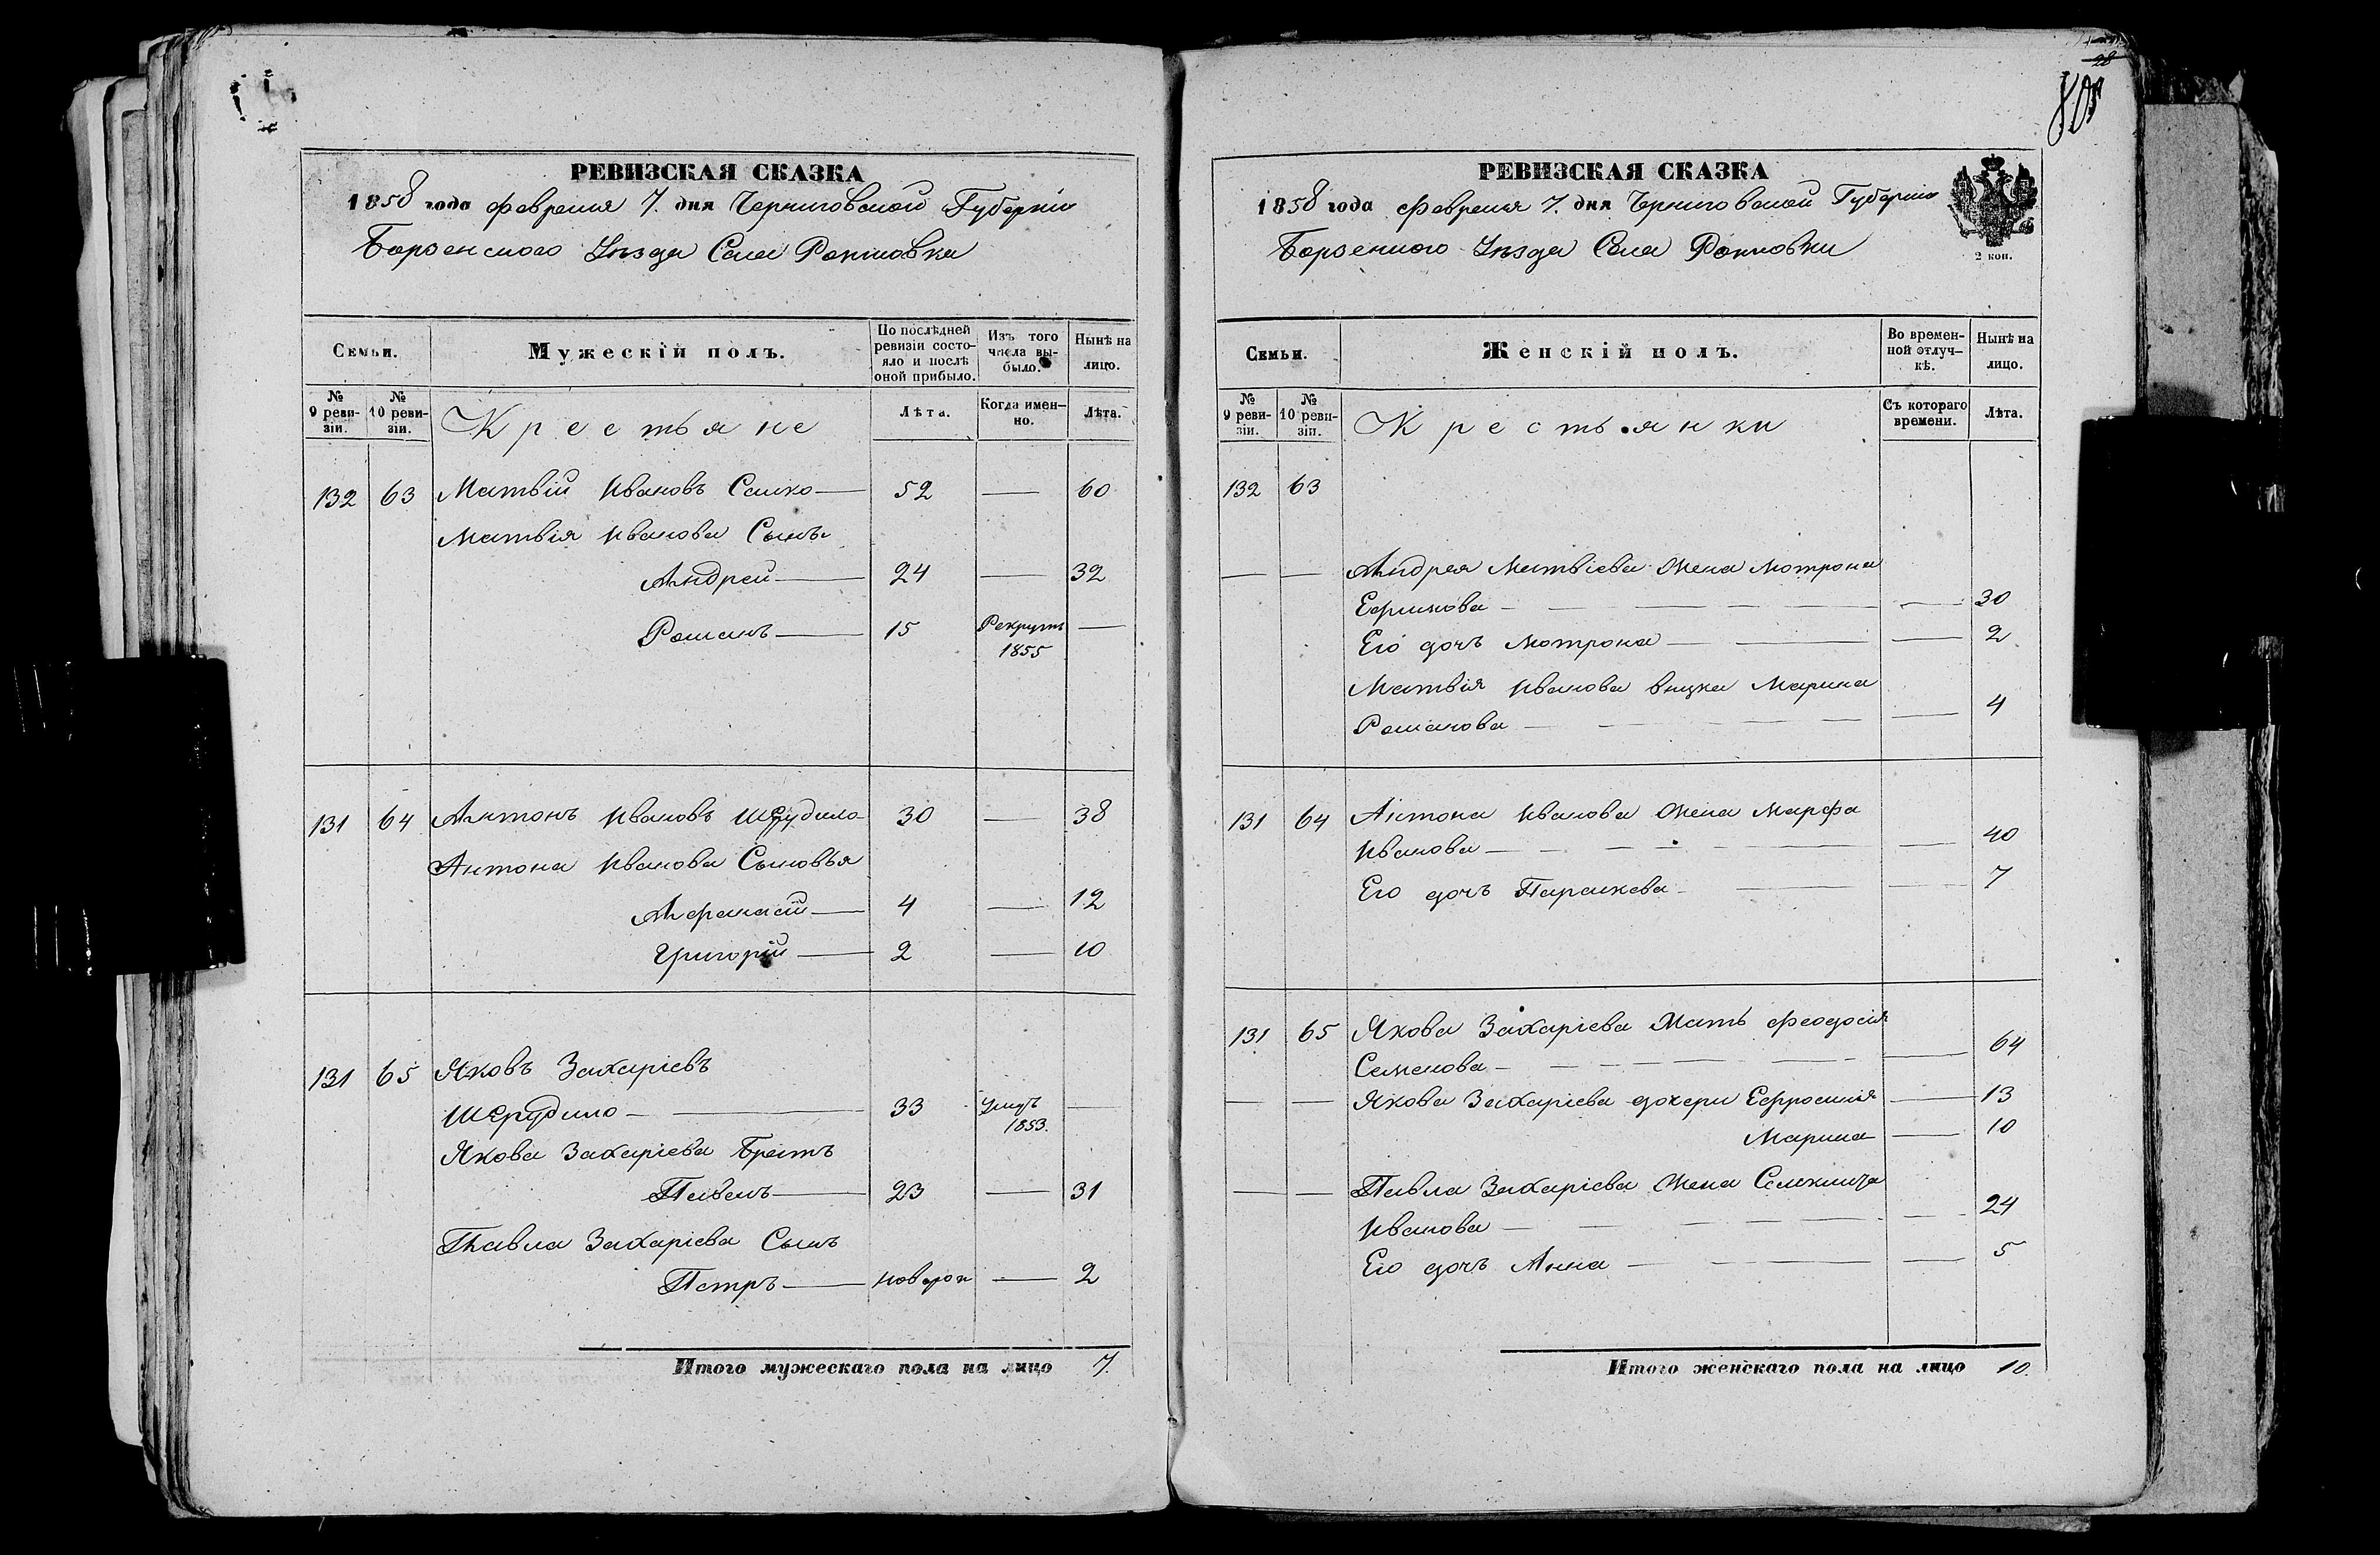 РЕВИЗСКАЯ СКАЗКА
1858 года февраля 7. дня Черниговской Губерніи
Борзенского Уѣзда Села
Семьи.
Мужескій полъ.
По послѣдней ревизіи состояло и послѣ оной прибыло.
Изъ того числа выбыло.
Нынѣ на лицо.
№ 9 ревизіи.
№ 10 ревизіи.
Крестьяне
Лѣта.
Когда именно.
Лѣта.
132 63 Матвій Ивановъ Сашко — 52 — 60
Матвія Иванова Сынъ
Андрей — 24 — 32
Романъ — 15 Рекрутъ 1855 —
131 64 Антонъ Ивановъ Шерудило 30 — 38
Антона Иванова Сыновья
Афанасій — 4 — 12
Григорій — 2 — 10
131 65 Яковъ Захаріевъ
Шерудило — 33 умръ 1853. —
Якова Захаріева Братъ
Павелъ — 23 — 31
Павла Захаріева Сынъ
Петръ — новорож — 2
Итого мужескаго пола на лицо 7.
28
805
РЕВИЗСКАЯ СКАЗКА
1858 года февраля 7. дня Черниговской Губерніи
Борзенского Уѣзда Села
2 коп.
Семьи.
Женскій полъ.
Во временной отлучкѣ.
Нынѣ на лицо.
№ 9 ревизіи.
№ 10 ревизіи.
Крестьянки
Съ котораго времени.
Лѣта.
132 63
— — Андрея Матвіева Жена Мотрона
Ефимова — — 30
Его дочь Мотрона — — 2
Матвія Иванова внука Марина
Романова — — 4
131 64 Антона Иванова Жена Марфа
Иванова — — 40
Его дочь Параскева — — 7
131 65 Якова Захаріева Мать Феодосія
Семенова — — 64
— — Якова Захаріева дочери Ефросинія — 13
Марина — 10
— — Павла Захаріева Жена
Иванова — — 24
Его дочь Анна — — 5
Итого женскаго пола на лицо 10.